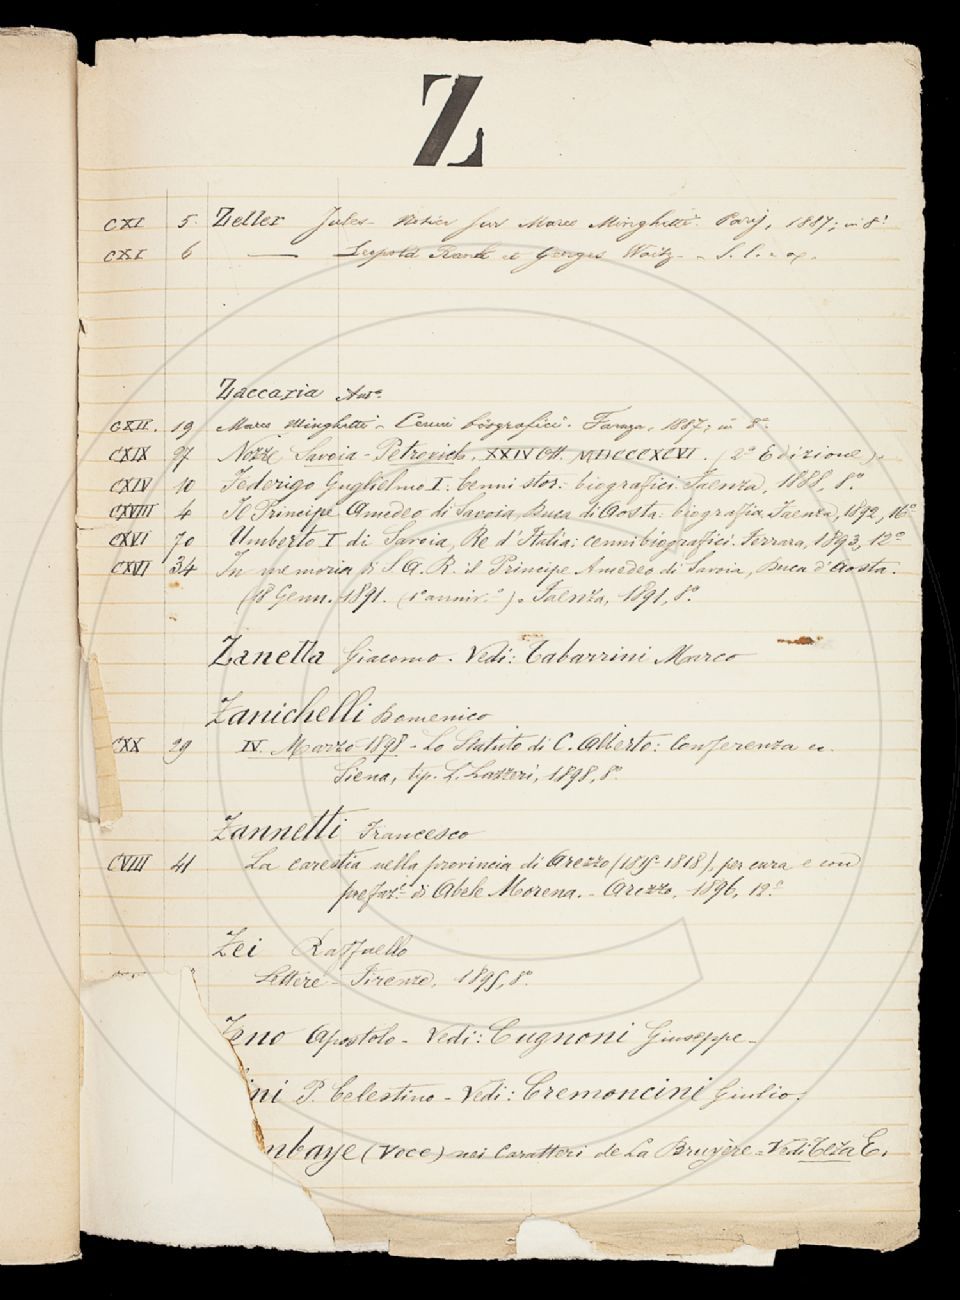 Z
CXI 5. Zeller Jules - Notice sur Marco Minghetti. Paris, 1887; in 8°
CXI 6 — Léopold Rank et Georges Waitz - S. l. n. a.
Zaccaria Ant.º
CXII. 19 Marco Minghetti - Cenni biografici. Faenza, 1887; in 8.º
CXIX 27 Nozze Savoia-Petrovich. XXIV Ott. MDCCCXCVI. (2ª Edizione).
CXIV 10 Federigo Guglielmo I: cenni stor: biografici. Faenza, 1888, 8.º
CXVIII 4 Il Principe Amedeo di Savoia, Duca di Aosta: biografia. Faenza, 1892, 16º
CXVI 70 Umberto I di Savoia, Re d'Italia: cenni biografici. Ferrara, 1893, 12º
CXVI 34 In memoria di S. A. R. il Principe Amedeo di Savoia, Duca d'Aosta.
(18 Genn. 1891. (1º anniv.º). Faenza, 1891, 8.º
Zanella Giacomo. Vedi: Tabarrini Marco
Zanichelli Domenico
CXX 29 IV. Marzo 1898 - Lo Statuto di C. Alberto: Conferenza ec.
Siena, tip. L. Lazzeri, 1898, 8.º
Zannetti Francesco
CVIII 41 La carestia nella provincia di Arezzo (1815-1818), per cura e con
prefaz.e di Abele Morena. - Arezzo, 1896, 12.º
Zei Raffaello
Lettere - Firenze, 1895, 8.º
Zeno Apostolo - Vedi: Cugnoni Giuseppe -
ini P. Celestino - Vedi: Cremoncini Giulio.
mbaye (Voce) nei Caratteri de La Bruyère - Vedi Teza E.